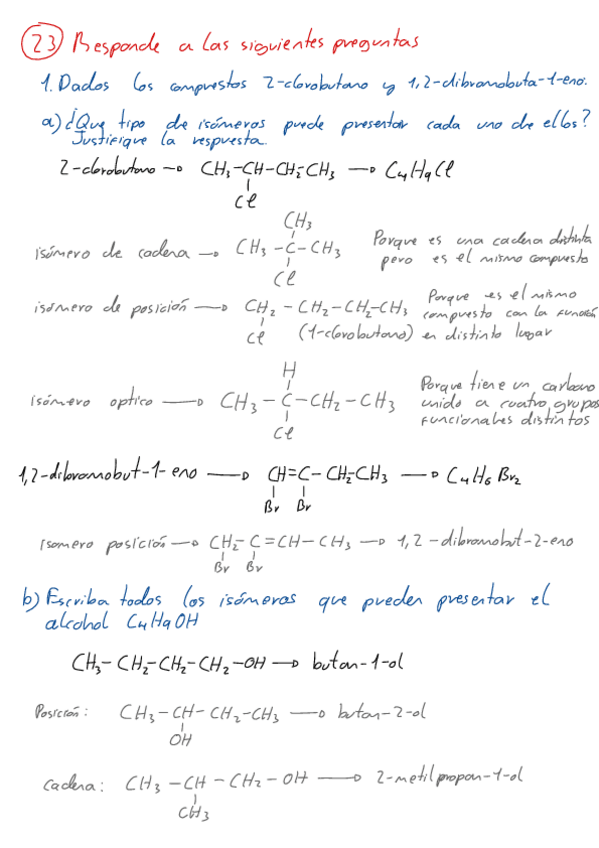 23) Responde a las siguientes preguntas
1. Dados los compuestos 2-clorobutano y 1,2-dibromobuta-1-eno.
a) ¿Que tipo de isómeros puede presentar cada uno de ellos?
Justifique la respuesta.
2-clorobutano → CH3-CH-CH2-CH3 → C4H9Cl
Cl
CH3
isómero de cadena → CH3-C-CH3 Porque es una cadena distinta
pero es el mismo compuesto
Cl
isómero de posición → CH2-CH2-CH2-CH3 Porque es el mismo
compuesto con la función
Cl (1-clorobutano) en distinto lugar
H
isómero optico → CH3-C-CH2-CH3 Porque tiene un carbono
unido a cuatro grupos
Cl funcionales distintos
1,2-dibromobut-1-eno → CH=C-CH2-CH3 → C4H6Br2
Br Br
Isomero posición → CH2-C=CH-CH3 → 1,2-dibromobut-2-eno
Br Br
b) Escriba todos los isómeros que pueden presentar el
alcohol C4H9OH
CH3-CH2-CH2-CH2-OH → butan-1-ol
Posición: CH3-CH-CH2-CH3 → butan-2-ol
OH
cadena: CH3-CH-CH2-OH → 2-metilpropan-1-ol
CH3